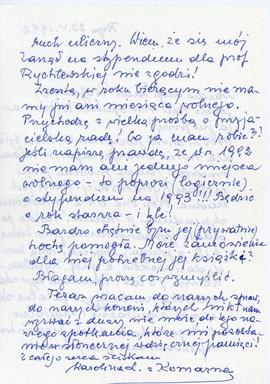 ruch uliczny. Wiem, że się mój
Zarząd na stypendium dla prof
Rychlewskiej nie zgodzi!
Zresztą, w roku bieżącym nie ma-
my już ani miesiąca wolnego.
Przychodzę z wielką prośbą o przyja-
cielską radę! bo ja mam robić?
Jeśli napiszę prawdę, że w r. 1992
nie mam ani jednego miejsca
wolnego - to poprosi (logicznie)
o stypendium na 1993!!! Będzie
o rok starsza - i źle!
Bardzo chętnie bym jej (prywatnie)
trochę pomogła. Może zamówienie
dla niej potrzebnej jej książki?
Błagam, proszę coś wymyślić.
Teraz wracam do naszych spraw,
do naszych korzeni, których nikt nam
wyrwać z duszy nie może do jego na-
szego spotkania, które mi pozosta-
nie w słonecznej wdzięcznej pamięci!
Z całego serca ściskam
Karolina L. z Komarna